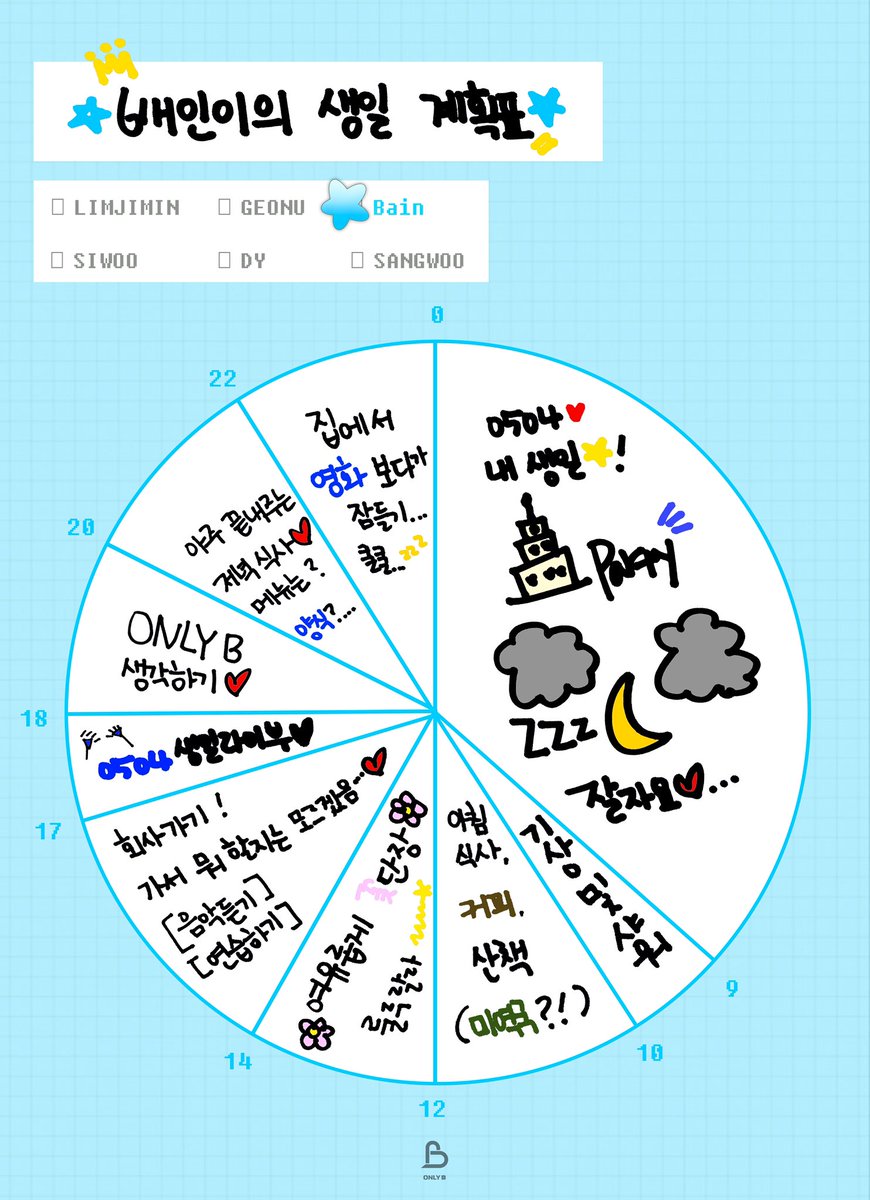 배인이의 생일 계획표
LIMJIMIN
GEONU
Bain
SIWOO
DY
SANGWOO
0
0504
내 생일!
Party
zzz
잘자요...
9
기상 및 샤워
10
아침
식사,
커피,
산책
(미역국?!)
12
여유롭게 단장
룰루랄라
14
회사가기!
가서 뭐 할지는 모르겠음...
[음악듣기]
[연습하기]
17
0504 생일라이부
18
ONLY B
생각하기
20
아주 끝내주는
저녁 식사
메뉴는?
양식?...
22
집에서
영화 보다가
잠들기...
쿨쿨.. zzz
ONLY B